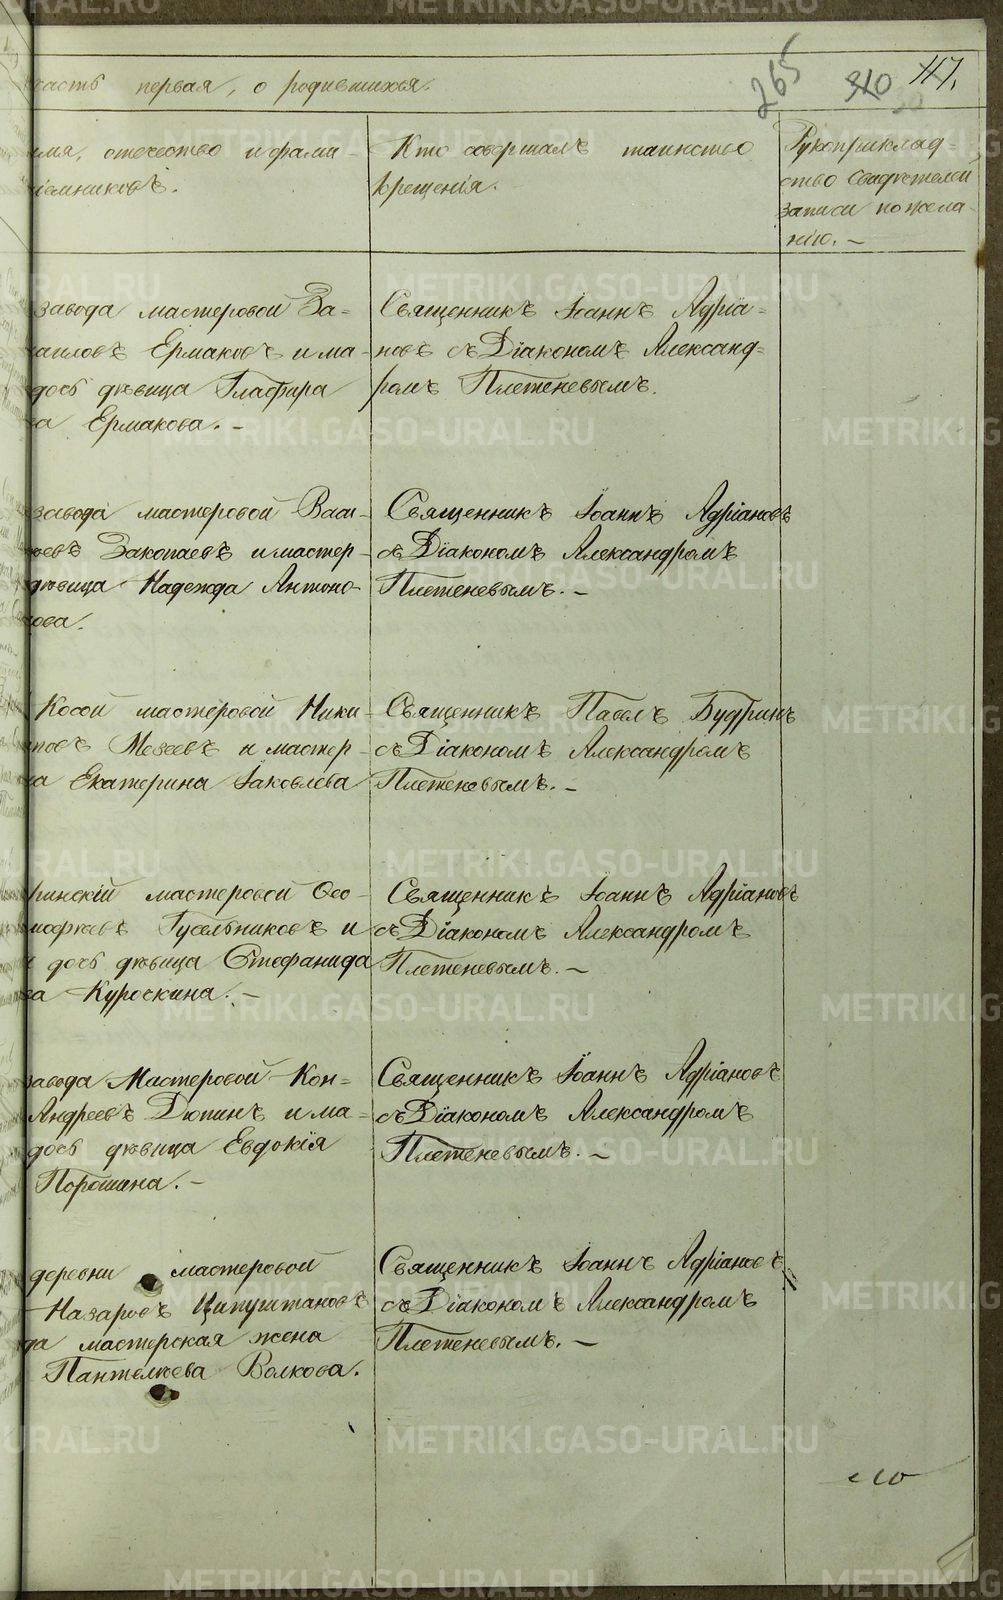 часть первая, о родившихся.
265 310 117.
имя, отечество и фами-
ріемниковъ.
Кто совершалъ таинство
крещенія.
Рукоприклад-
ство свидѣтелей
записи по жела-
нію. —
завода мастеровой За-
аиловъ Ермаковъ и ма-
дочь дѣвица Глафира
ва Ермакова. —
Священникъ Іоаннъ Адріа-
новъ съ Діакономъ Александ-
ромъ Плетеневымъ.
завода мастеровой Васи-
ьевъ Закопаевъ и мастер-
дѣвица Надежда Антоно-
кова.
Священникъ Іоаннъ Адріановъ
съ Діакономъ Александромъ
Плетеневымъ. —
Косой мастеровой Ники-
повъ Мозеевъ и мастер-
на Екатерина Іаковлева
Священникъ Павелъ Будринъ
съ Діакономъ Александромъ
Плетеневымъ. —
ринскій мастеровой Ѳео-
моѳеевъ Гусельниковъ и
дочь дѣвица Стефанида
ва Куроскина. —
Священникъ Іоаннъ Адріановъ
съ Діакономъ Александромъ
Плетеневымъ. —
завода Мастеровой Кон-
Андреевъ Дюпинъ и ма-
дочь дѣвица Евдокія
Порошина. —
Священникъ Іоаннъ Адріановъ
съ Діакономъ Александромъ
Плетеневымъ. —
деревни мастеровой
Назаровъ Ципуштановъ
да мастерская жена
Пантелѣева Волкова.
Священникъ Іоаннъ Адріановъ
съ Діакономъ Александромъ
Плетеневымъ. —
METRIKI.GASO-URAL.RU